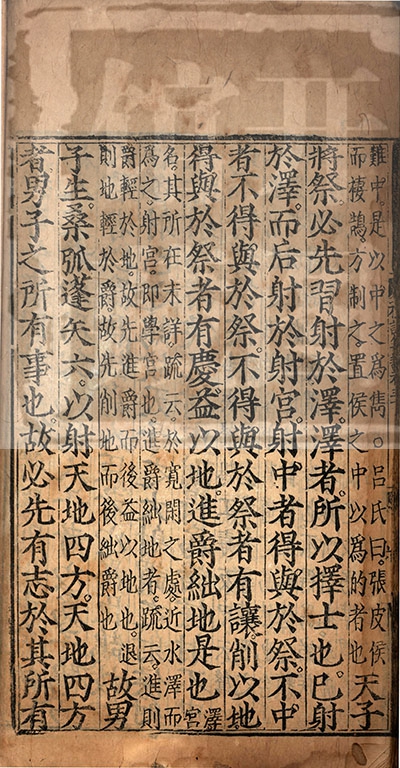 難中。是以中之爲雋。呂氏曰。張皮侯
而棲鵠。方制之。置侯之中以爲的者也
天子
將祭。必先習射於澤。澤者。所以擇士也。已射
於澤。而后射於射宮。射中者得與於祭。不中
者不得與於祭。不得與於祭者有讓。削以地
得與於祭者有慶。益以地。進爵絀地是也
澤
宮
名。其所在未詳。疏云。於寬閒之處近水澤而
爲之。射宮即學宮也。進爵絀地者。疏云。進則
爵輕於地。故先進爵而後益以地也。退
則地輕於爵。故先削地而後絀爵也
故男
子生。桑弧蓬矢六。以射天地四方。天地四方
者。男子之所有事也。故必先有志於其所有